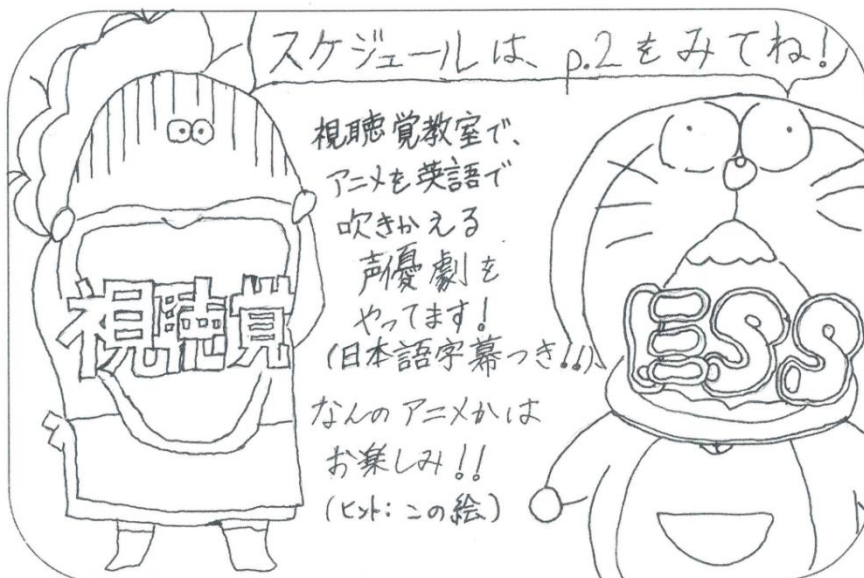 スケジュールは、p.2をみてね!
視聴覚教室で、
アニメを英語で
吹きかえる
声優劇を
やってます!
(日本語字幕つき!!)
なんのアニメかは
お楽しみ!!
(ヒント:この絵)
視聴覚
ESS